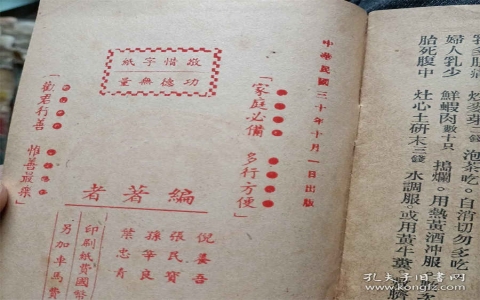 婦人乳少 鮮蝦肉數十只 搗爛。用熱黃酒冲服
胎死腹中 灶心土研末三錢 水調服。或用黃牛糞
泡茶吃。自消切勿
中華民國三十年十月一日出版
「家庭必備 多行方便」
敬惜字紙
功德無量
「勸君行善 惟善最樂」
編著者
張民寶
葉忠青
印刷紙費國幣
另加車馬費
孔夫子旧书网